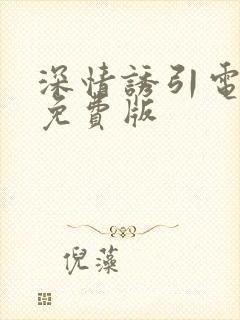 深情誘引電
免費版
倪藻